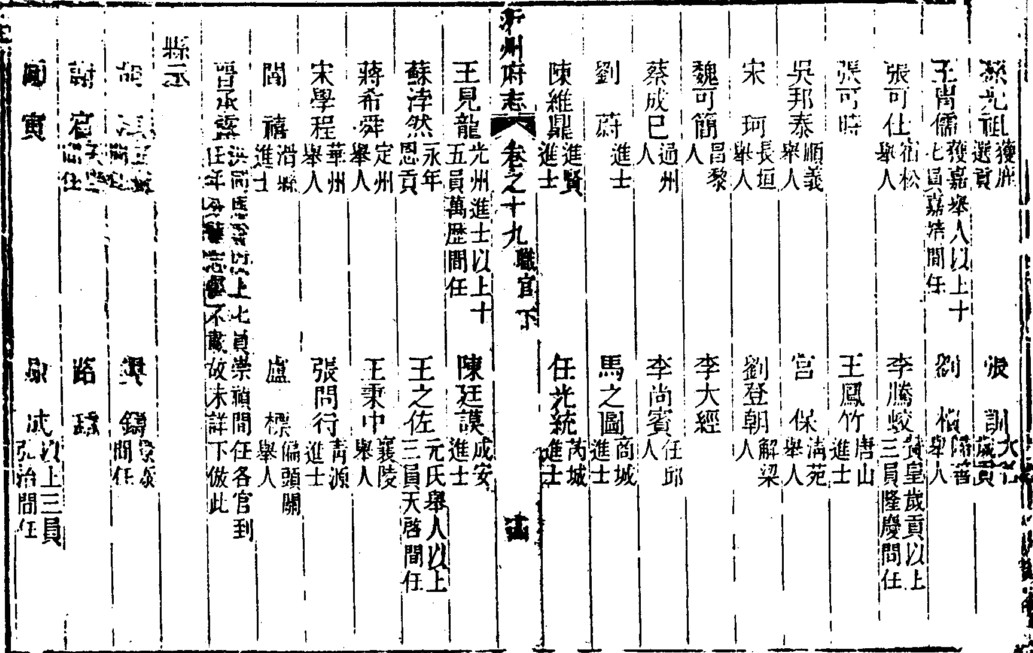 孫光祖獲鹿選貢 張訓歲貢
王尚儒獲嘉舉人以上十七員嘉靖間任 劉舉人
張可仕宿松舉人 李騰蛟黃皇歲貢以上三員隆慶間任
張可時 王鳳竹唐山進士
吳邦泰順義舉人 宮保清苑舉人
宋珂長垣舉人 劉登朝解梁人
魏可簡昌黎人 李大經
蔡成巳通州人 李尚賓任邱人
劉蔚進士 馬之圖商城進士
陳維鼎進賢進士 任光統芮城進士
沂州府志 卷之十九 職官下
王見龍光州進士以上十五員萬歷間任 陳廷謨成安進士
蘇浡然永年恩貢 王之佐元氏舉人以上三員天啓間任
蔣希舜定州舉人 王秉中襄陵舉人
宋學程華州舉人 張問行青源進士
閻禧滑縣進士 盧標偏頭關舉人
晉承露洪洞以上七員崇禎間任各官到任年分舊志不載故未詳下倣此
縣丞
胡 間任
謝官 路
寅 成以上三員弘治間任